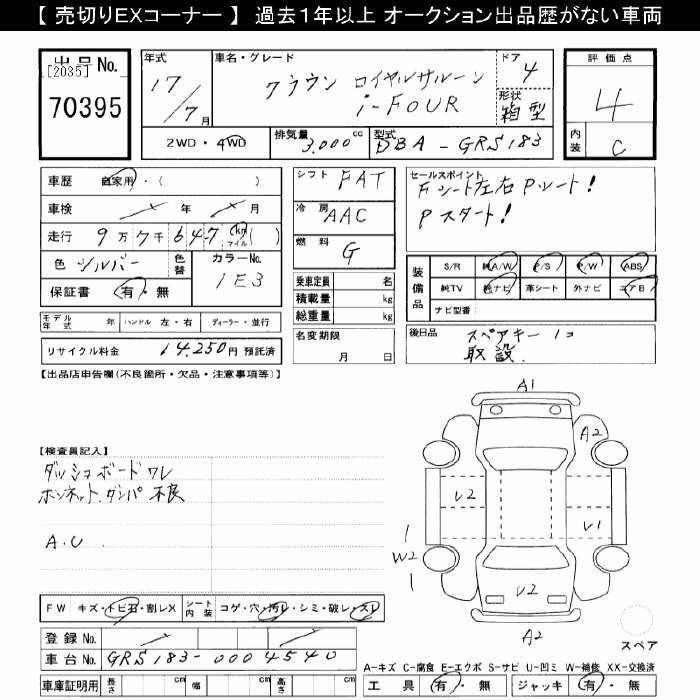 【 売切りEXコーナー 】 過去1年以上 オークション出品歴がない車両
出品 No.
[2035]
70395
年式
17/7月
車名・グレード
クラウン ロイヤルサルーン
i-FOUR
ドア
4
形状
箱型
2WD・4WD
排気量 3,000cc
型式 DBA-GRS183
評価点
4
内装
C
車歴 自家用・( )
車検 年 月
走行 9万7千647 km マイル ( )
色 シルバー
色替
カラーNo.
1E3
保証書 有・無
モデル年式 年 ハンドル 左・右 ディーラー・並行
リサイクル料金 14,250円 預託済
シフト FAT
冷房 AAC
燃料 G
乗車定員 名
積載量 kg
総重量 kg
名変期限
月 日
セールスポイント
Fシート左右Pシート!
Pスタート!
装備品
S/R 純A/W P/S P/W ABS
純TV 純ナビ 革シート 外ナビ エアB
ナビ型番:
後日品 スペアキー1コ
取説
【出品店申告欄(不良箇所・欠品・注意事項等)】
【検査員記入】
ダッシュボードワレ
ボンネットダンパ 不良
A.U
FW キズ・トビ石・割レX シート内装 コゲ・穴・汚レ・シミ・破レ・スレ
登録 No.
車台 No. GRS183-0004540
車庫証明用 長さ cm 幅 cm 高さ cm
A1
A2
U2
U1
W2
U2
A2
スペア
A-キズ C-腐食 E-エクボ S-サビ U-凹ミ W-補修 XX-交換済
工具 有・無 ジャッキ 有・無